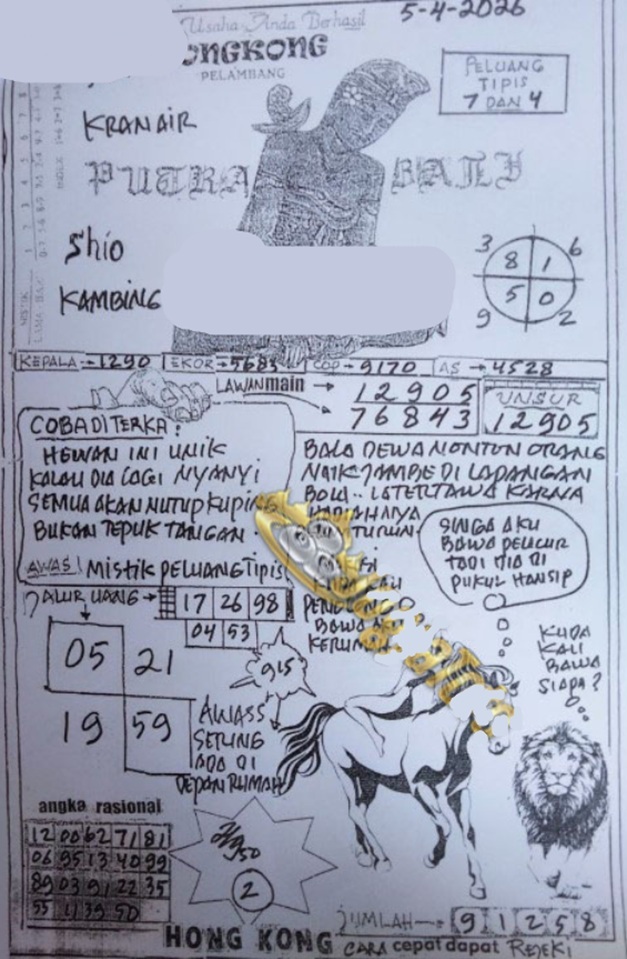 Usaha Anda Berhasil
5-4-2026
ONGKONG
PELAMBANG
PELUANG
TIPIS
7 DAN 4
KRANAIR
PUTRA BALI
Shio
KAMBING
3 6
8 1
5 0
9 2
KEPALA → 1290 EKOR → 5683 COP → 9170 AS → 4528
LAWAN main → 12905
76843
UNSUR
12905
COBA DITERKA :
HEWAN INI UNIK
KALAU DIA LAGI NYANYI
SEMUA AKAN NUTUP KUPING
BUKAN TEPUK TANGAN
BALA DEWA NONTON ORANG
NAIK JAMBE DI LAPANGAN
BOLA.. LATER TAWA KARNA
HADIAHNYA
TURUN
SINGA AKU
BAWA PELUUR
TADI DIA DI
PUKUL HANSIP
AWAS! Mistik PELUANG TIPIS
JALUR UANG → 17 26 98
04 53
KUDA KAU
BAWA AKU
05 21
19 59
915
AWASS
SETUNG
ADA DI
DEPAN RUMAH
KUDA
KALI
BAWA
SIAPA?
angka rasional
12 00 62 71 81
06 95 13 40 99
89 03 91 22 35
55 11 39 50
2
JUMLAH → 9 1 2 5 8
HONG KONG
CARA cepat dapat REJEKI